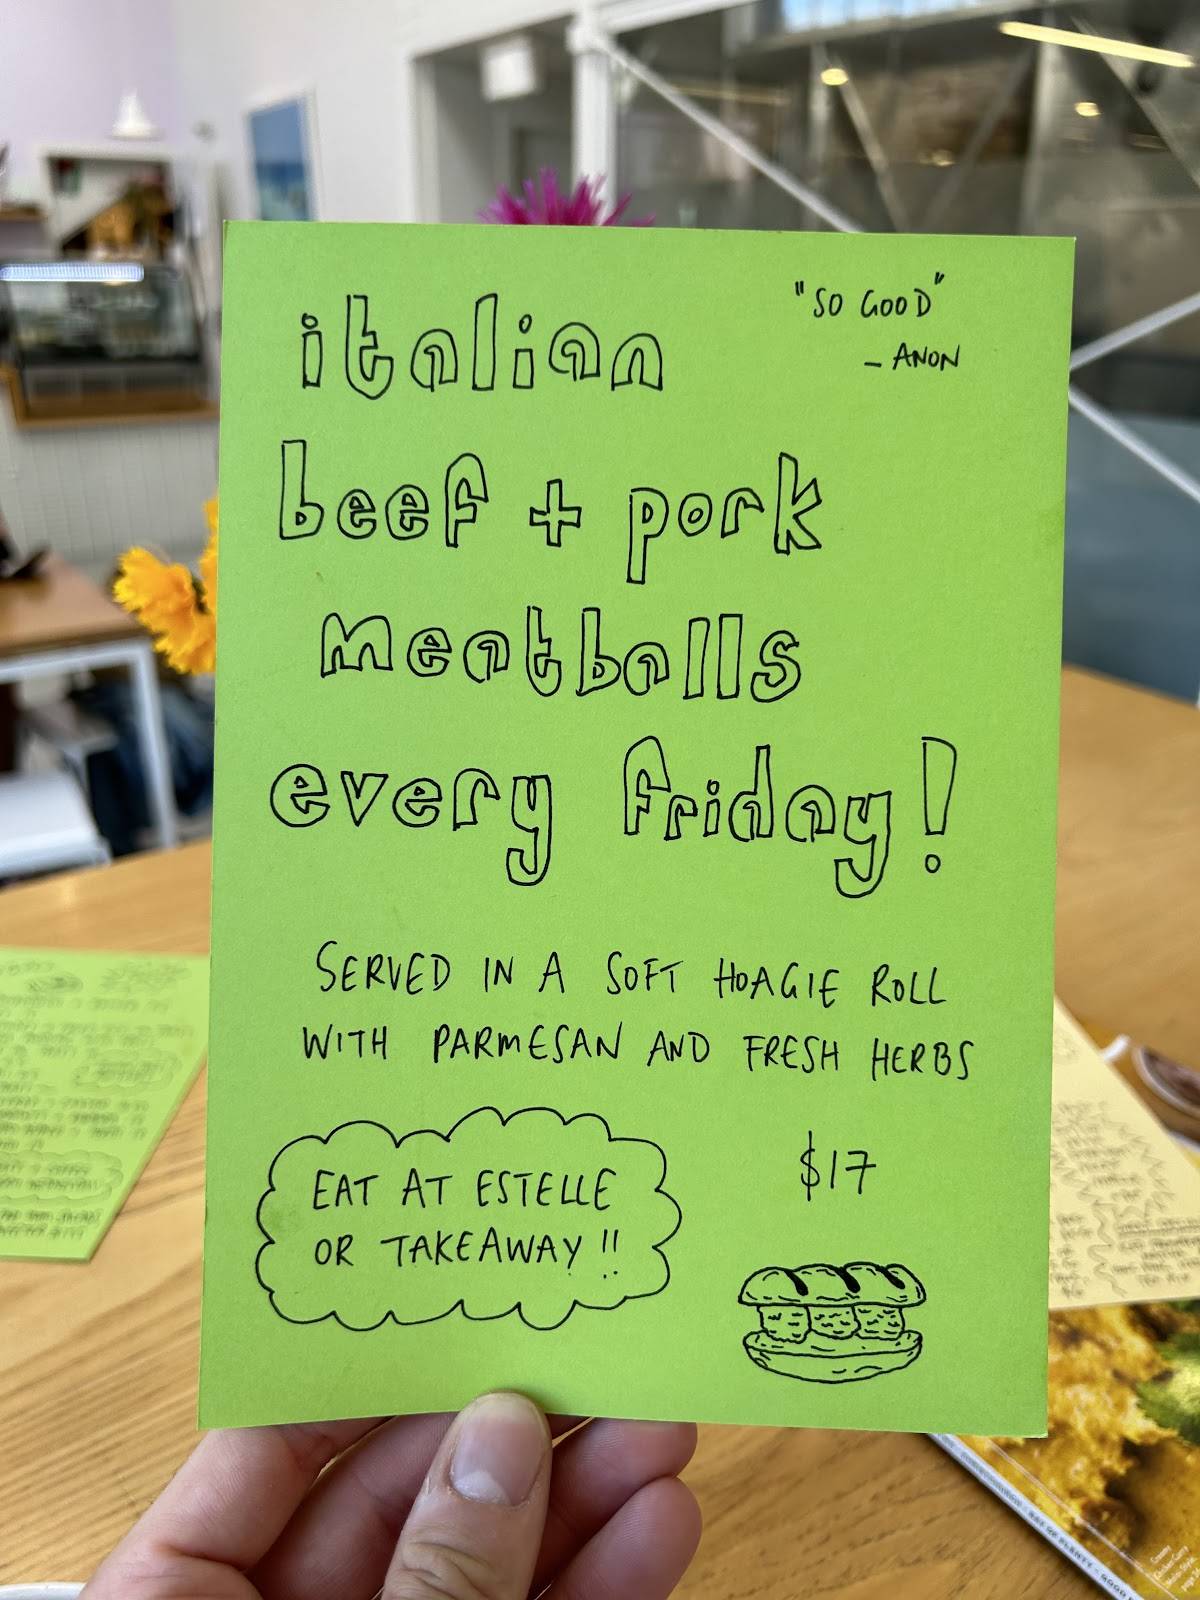 italian
"SO GOOD"
- ANON
beef + pork
meatballs
every friday!
SERVED IN A SOFT HOAGIE ROLL
WITH PARMESAN AND FRESH HERBS
EAT AT ESTELLE
OR TAKEAWAY!!
$17